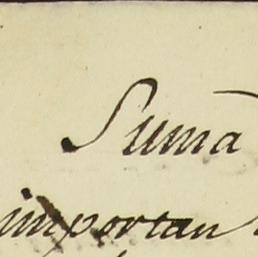 Sumã
importan